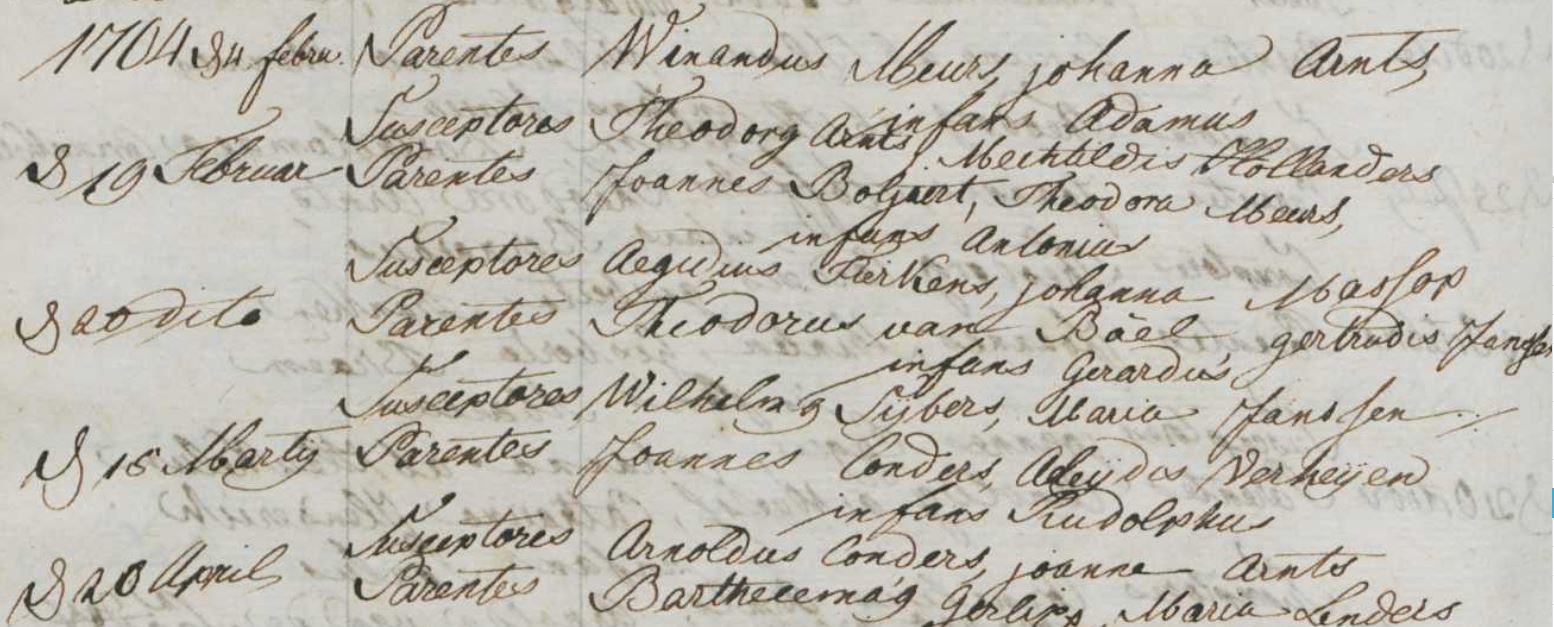 1704 d 4 febru. Parentes Winandus Meurs, johanna Arnts,
infans Adamus
Susceptores Theodorg Arnts, Mechtildis Hollanders
d 19 Februar Parentes Joannes Boljaert, Theodora Meurs,
infans Antonius
Susceptores Aegidius Fierkens, johanna Massop
d 20 dito Parentes Theodorus van Bäel gertrudis Janssen
infans Gerardus
Susceptores Wilhelmg Sijbers, Maria Janssen
d 15 Martij Parentes Joannes Conders, Aleijdis Verheijen
infans Rudolphus
Susceptores Arnoldus Conders, joanna Arnts
d 20 April Parentes Maria Lenders